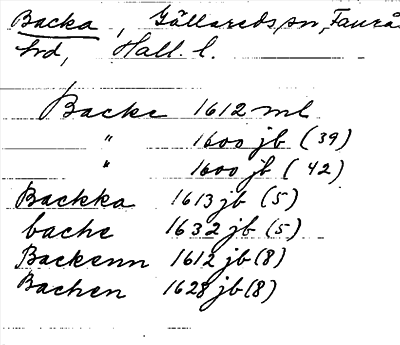 Backa, Gällareds sn, Faurås
hrd, Hall. l.
Backe 1612 ml
" 1600 jb (39)
" 1600 jb (42)
Backka 1613 jb (5)
bache 1632 jb (5)
Backenn 1612 jb (8)
Bachen 1628 jb (8)